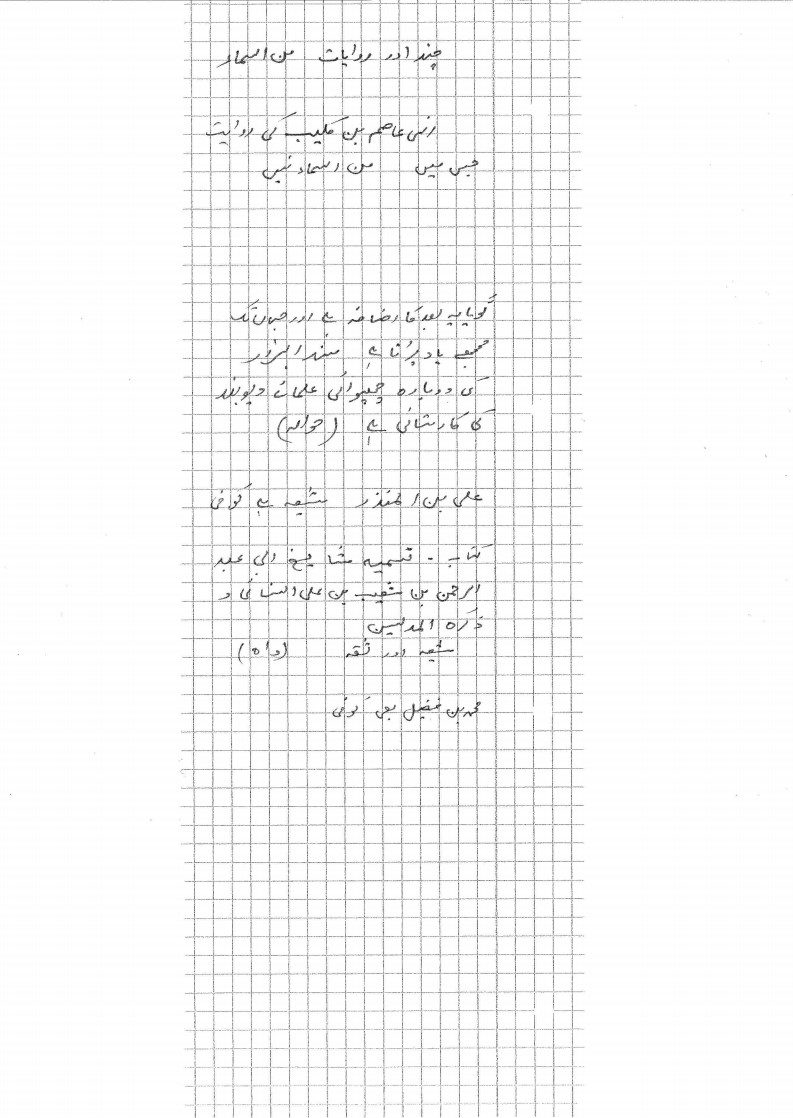 چند اور روایات من السماء
انہی عاصم بن کلیب کی روایت
جس میں من السماء نہیں
گویا یہ بعد کا اضافہ ہے اور جہاں تک
مجھے یاد پڑتا ہے مسند البزار
کی دوبارہ چھپوائی علمائے دیوبند
کی کارستانی ہے (حوالہ)
علی بن المنذر شیعہ ہے کوفی
کتاب - تسمیہ مشایخ ابی عبد
الرحمن بن شعیب بن علی النسائی و
ذکرہ المدلسین
شیعہ اور ثقہ (واہ)
محمد بن فضیل بھی کوفی